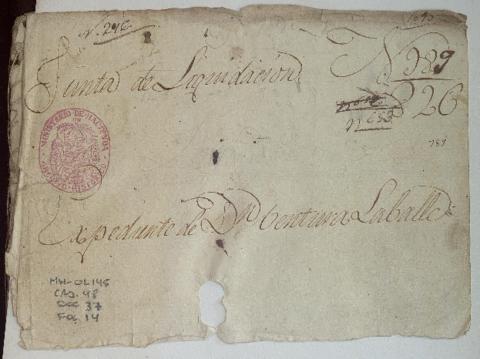 N. 246
Junta de Liquidacion
N 989
26
N 653
789
MINISTERIO DE HACIENDA
Expediente de Dn Ventura Laballe
MH-OL 145
CAJ. 48
DOC 37
FOL 14